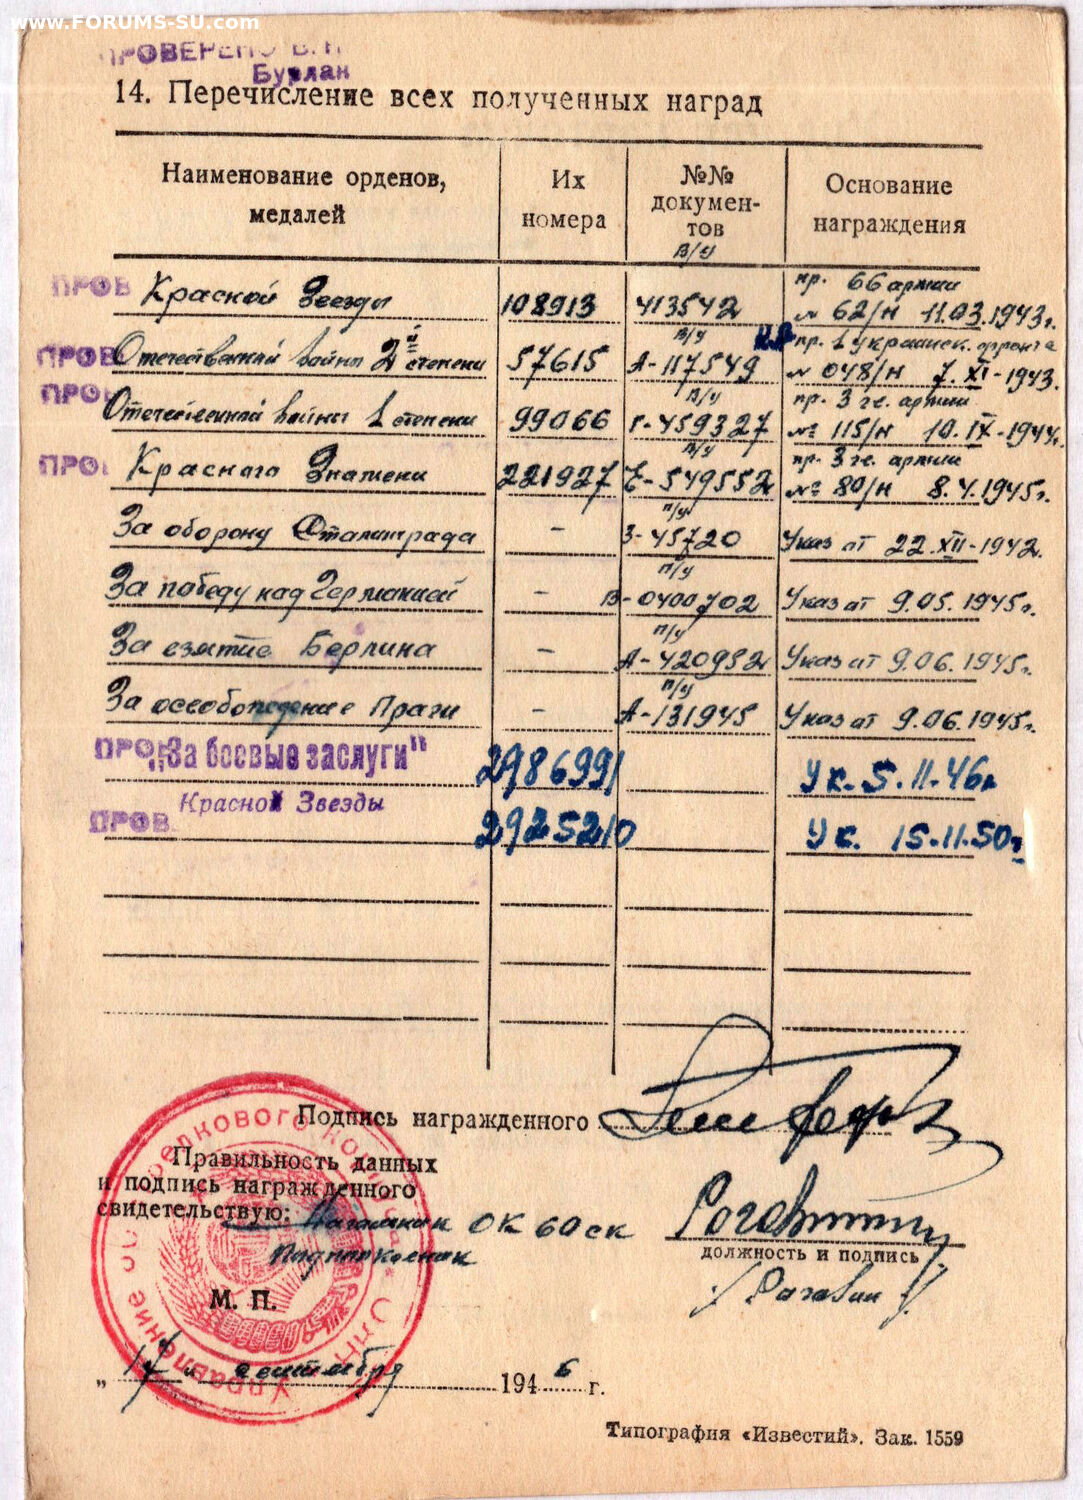 www.FORUMS-SU.com
ПРОВЕРЕНО В.П
Бурлан
14. Перечисление всех полученных наград
Наименование орденов, медалей
Их номера
№№ документов
Основание награждения
ПРОВ Красной Звезды 108913 в/у 413542 пр. 66 армии № 62/н 11.03.1943г.
ПРОВ Отечественной войны 2й степени 57615 в/у А-117549 пр. 1 украинск. фронта № 048/н 7.XI-1943.
ПРОВ Отечественной войны 1 степени 99066 в/у Г-459327 пр. 3 гв. армии № 115/н 10.IX-1944г.
ПРОВ Красного Знамени 221927 в/у Е-549552 пр. 3 гв. армии № 80/н 8.4.1945г.
За оборону Сталинграда - п/у З-45720 Указ от 22.XII-1942.
За победу над Германией - п/у В-0400702 Указ от 9.05.1945г.
За взятие Берлина - п/у А-420952 Указ от 9.06.1945г.
За освобождение Праги - п/у А-131945 Указ от 9.06.1945г.
ПРОВ „За боевые заслуги" 2986991 Ук. 5.11.46г
ПРОВ Красной Звезды 2925210 Ук. 15.11.50г
Подпись награжденного
Правильность данных
и подпись награжденного
свидетельствую: Начальник ОК 60 ск
Подполковник
должность и подпись
/Рогавин/
М. П.
Управление стрелкового корпуса
„17" сентября 1946 г.
Типография «Известий». Зак. 1559